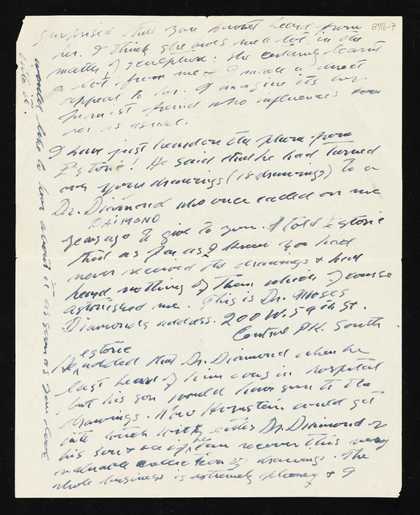 8716-7
surprised that you haven't heard from
her. I think she owes me a lot in the
matter of sculpture. She certainly learnt
a lot from me & I made a direct
appeal to her. I imagine its her
friend who influences
her as usual.
I have just heard on the phone from
Estoric! He said that he had turned
over your drawings (18 drawings) to a
Dr. Diamond who once called on me
DAIMOND
years ago to give to you. I told Estoric
that as far as I knew you had
never received the drawings & had
heard nothing of them which of course
astonished me. This is Dr. Moses
Diamonds address. 200 W. 59th St.
Central Pk. South
Estoric
added that Dr. Diamond when he
last heard of him was in hospital
but his son would have given to the
drawings. Now Hornstein could get
into touch with either Dr. Diamond or
his son & recover this very
valuable collection of drawings. The
whole business is extremely phoney & I
wonder
write a line about it as soon as you have